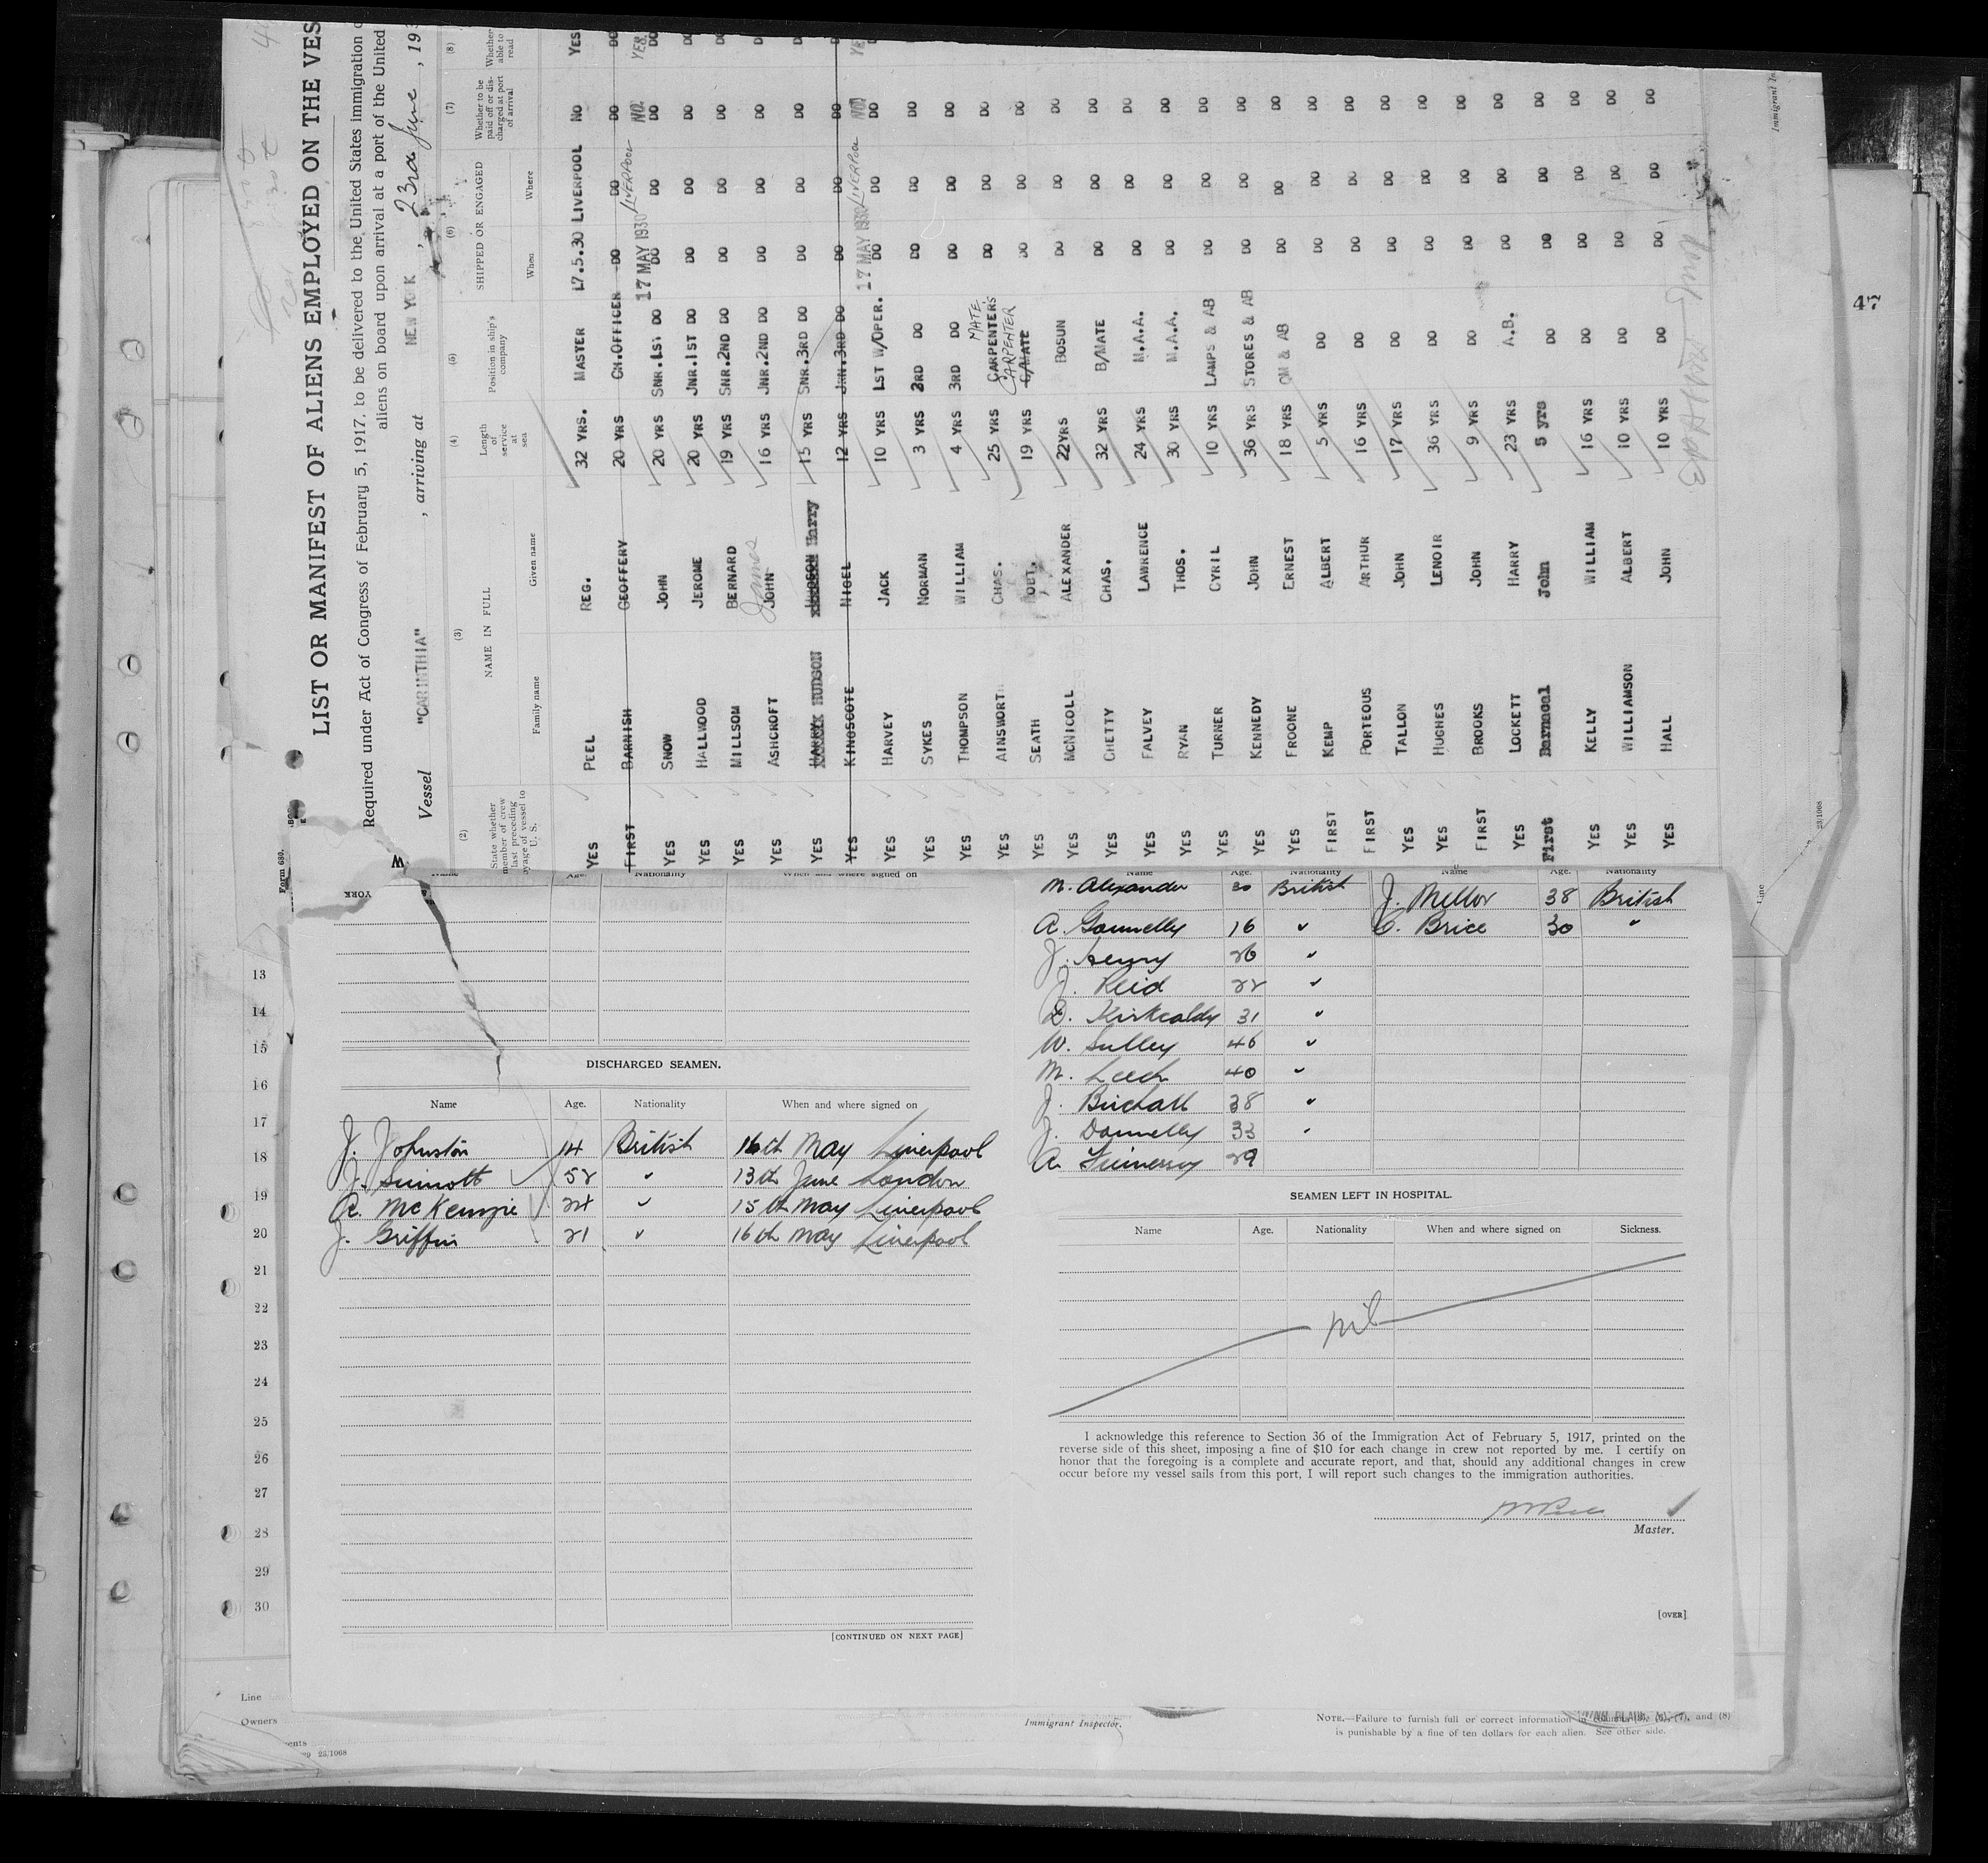 LIST OR MANIFEST OF ALIENS EMPLOYED ON THE VES
Required under Act of Congress of February 5, 1917, to be delivered to the United States immigration
aliens on board upon arrival at a port of the United
Vessel "CARINTHIA", arriving at NEW YORK, 23rd June, 193
(2) (3) (4) (5) (6) (7) (8)
State whether member of crew last preceding voyage of vessel to U. S. NAME IN FULL Family name Given name Length of service at sea Position in ship's company SHIPPED OR ENGAGED When Where Whether to be paid off or discharged at port of arrival Whether able to read
YES PEEL REG. 32 YRS. MASTER 17.5.30 LIVERPOOL NO YES
FIRST BARNISH GEOFFERY 20 YRS CH.OFFICER DO DO DO DO
17 MAY 1930 LIVERPOOL NO. YES.
YES SNOW JOHN 20 YRS SNR.1ST DO DO DO DO DO
YES HALLWOOD JEROME 20 YRS JNR.1ST DO DO DO DO DO
YES MILLSOM BERNARD 19 YRS SNR.2ND DO DO DO DO DO
James
YES ASHCROFT JOHN 16 YRS JNR.2ND DO DO DO DO DO
YES HARRY HUDSON HUDSON Harry 15 YRS SNR.3RD DO DO DO DO DO
YES KINGSCOTE NIGEL 12 YRS JNR.3RD DO DO DO DO DO
17 MAY 1930 LIVERPOOL NO. YE
YES HARVEY JACK 10 YRS 1ST W/OPER. DO DO DO DO
YES SYKES NORMAN 3 YRS 2RD DO DO DO DO
YES THOMPSON WILLIAM 4 YRS 3RD DO DO DO DO
MATE
YES AINSWORTH CHAS. 25 YRS CARPENTER'S DO DO DO
CARPENTER
YES SEATH ROBT. 19 YRS C/MATE DO DO DO
YES MCNICOLL ALEXANDER 22YRS BOSUN DO DO DO
YES CHETTY CHAS. 32 YRS B/MATE DO DO DO
YES FALVEY LAWRENCE 24 YRS M.A.A. DO DO DO
YES RYAN THOS. 30 YRS M.A.A. DO DO DO
YES TURNER CYRIL 10 YRS LAMPS & AB DO DO DO
YES KENNEDY JOHN 36 YRS STORES & AB DO DO DO
YES FROONE ERNEST 18 YRS QM & AB DO DO DO
FIRST KEMP ALBERT 5 YRS DO DO DO DO
FIRST PORTEOUS ARTHUR 16 YRS DO DO DO DO
YES TALLON JOHN 17 YRS DO DO DO DO
YES HUGHES LENOIR 36 YRS DO DO DO DO
FIRST BROOKS JOHN 9 YRS DO DO DO DO
YES LOCKETT HARRY 23 YRS A.B. DO DO DO
First John 5 yrs DO DO DO DO
YES KELLY WILLIAM 16 YRS DO DO DO DO
YES WILLIAMSON ALBERT 10 YRS DO DO DO DO
YES HALL JOHN 10 YRS DO DO DO DO
23/1068
Immigrant In
Form 680.
YORK
47
Name Age. Nationality When and where signed on
13
14
15
16
17
18
19
20
21
22
23
24
25
26
27
28
29
30
DISCHARGED SEAMEN.
Name Age. Nationality When and where signed on
J. Johnston 14 British 16th May Liverpool
J. Sinnott 52 " 13th June London
A. McKenzie 24 " 15th May Liverpool
J. Griffin 21 " 16th May Liverpool
[CONTINUED ON NEXT PAGE]
Name Age. Nationality Name Age. Nationality
M. Alexander 30 British J. Mellor 38 British
A. Gonnelly 16 " C. Brice 30 "
J. Henry 26 "
J. Reid 22 "
D. Kirkcaldy 31 "
W. Sulley 46 "
M. Leech 40 "
J. Birchall 38 "
J. Donnelly 33 "
A. 29
SEAMEN LEFT IN HOSPITAL.
Name Age. Nationality When and where signed on Sickness.
nil
I acknowledge this reference to Section 36 of the Immigration Act of February 5, 1917, printed on the
reverse side of this sheet, imposing a fine of $10 for each change in crew not reported by me. I certify on
honor that the foregoing is a complete and accurate report, and that, should any additional changes in crew
occur before my vessel sails from this port, I will report such changes to the immigration authorities.
Master.
[OVER]
Line
Owners
Immigrant Inspector.
NOTE.—Failure to furnish full or correct information in columns (5), (7), and (8)
is punishable by a fine of ten dollars for each alien. See other side.
23/1068